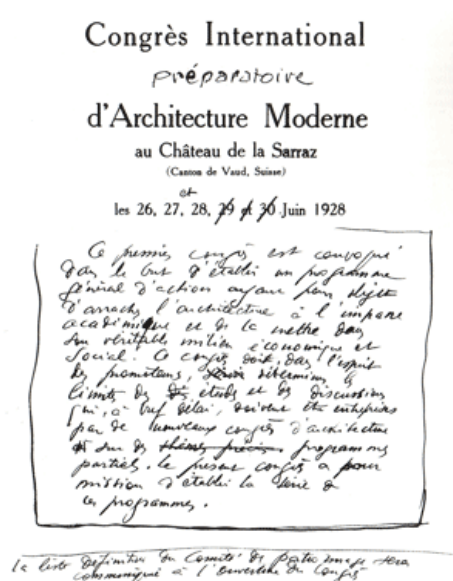 Congrès International
préparatoire
d'Architecture Moderne
au Château de la Sarraz
(Canton de Vaud, Suisse)
et
les 26, 27, 28, 29 et 30 Juin 1928
Ce premier congrès est convoqué
dans le but d'établir un programme
général d'action ayant pour objet
d'arracher l'architecture à l'impasse
académique et de la mettre dans
son véritable milieu économique et
social. Ce congrès doit, dans l'esprit
des promoteurs, déterminer les
limites des études et des discussions
qui, à bref délai, doivent être entreprises
par de nouveaux congrès d'architecture
sur des thèmes précis. programmes
partiels. le présent congrès a pour
mission d'établir la série de
ces programmes.
la liste définitive du Comité de patronage sera
communiquée à l'ouverture du Congrès